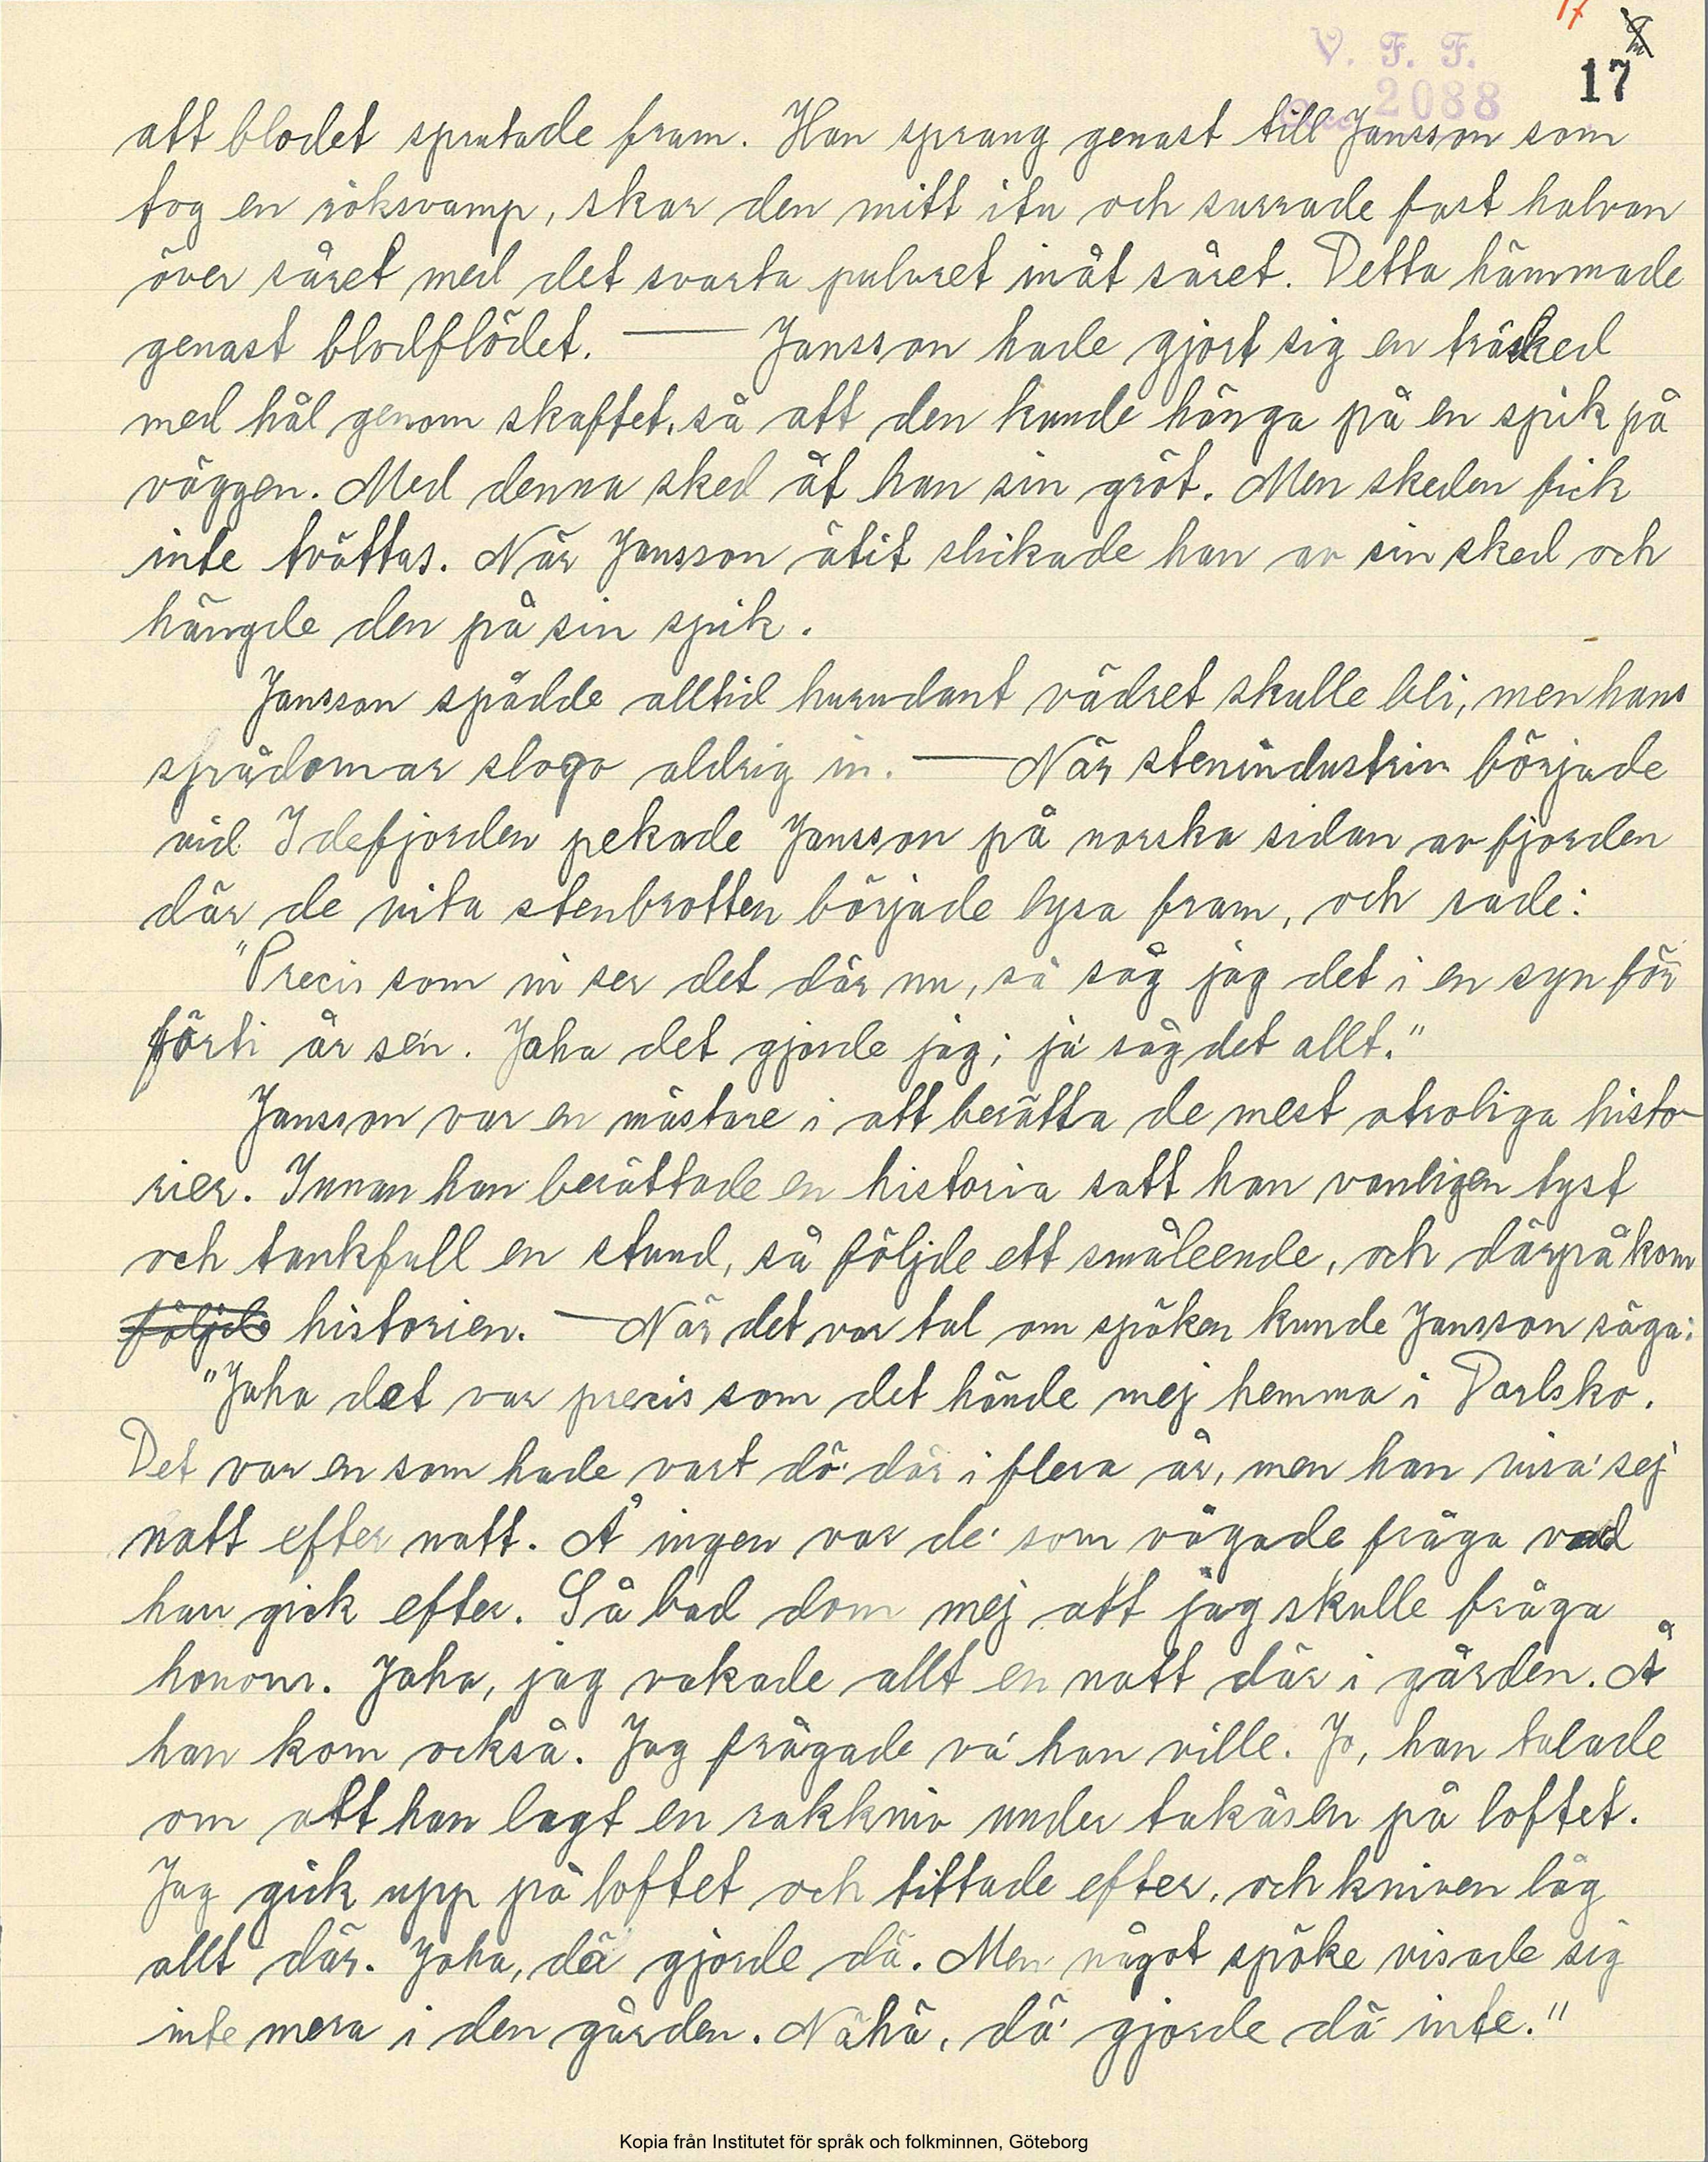 17
V. F. F.
2088
17
att blodet sprutade fram. Han sprang genast till Jansson som
tog en röksvamp, skar den mitt itu och surrade fast halvan
över såret med det svarta pulvret inåt såret. Detta hämmade
genast blodflödet. — Jansson hade gjort sig en träsked
med hål genom skaftet, så att den kunde hänga på en spik på
väggen. Med denna sked åt han sin gröt. Men skeden fick
inte tvättas. När Jansson ätit slickade han av sin sked och
hängde den på sin spik.
Jansson spådde alltid hurudant vädret skulle bli, men hans
spådomar slogo aldrig in. — När stenindustrin började
vid Idefjorden pekade Jansson på norska sidan av fjorden
där de vita stenbrotten började lysa fram, och sade:
"Precis som ni ser det där nu, så såg jag det i en syn för
förti år sen. Jaha det gjorde jag; ja såg det allt."
Jansson var en mästare i att berätta de mest otroliga histo-
rier. Innan han berättade en historia satt han vanligen tyst
och tankfull en stund, så följde ett småleende, och därpå kom
följde historien. — När det var tal om spöken kunde Jansson säga:
"Jaha det var precis som det hände mej hemma i Dalsko.
Det var en som hade vart dö' där i flera år, men han visa' sej
natt efter natt. Å ingen var de' som vågade fråga vad
han gick efter. Så bad dom mej att jag skulle fråga
honom. Jaha, jag vakade allt en natt där i gården. Å
han kom också. Jag frågade va' han ville. Jo, han talade
om att han lagt en rakkniv under takåsen på loftet.
Jag gick upp på loftet och tittade efter, och kniven låg
allt där. Jaha, dä gjorde dä. Men något spöke visade sig
inte mera i den gården. Nähä, dä' gjorde dä' inte."
Kopia från Institutet för språk och folkminnen, Göteborg